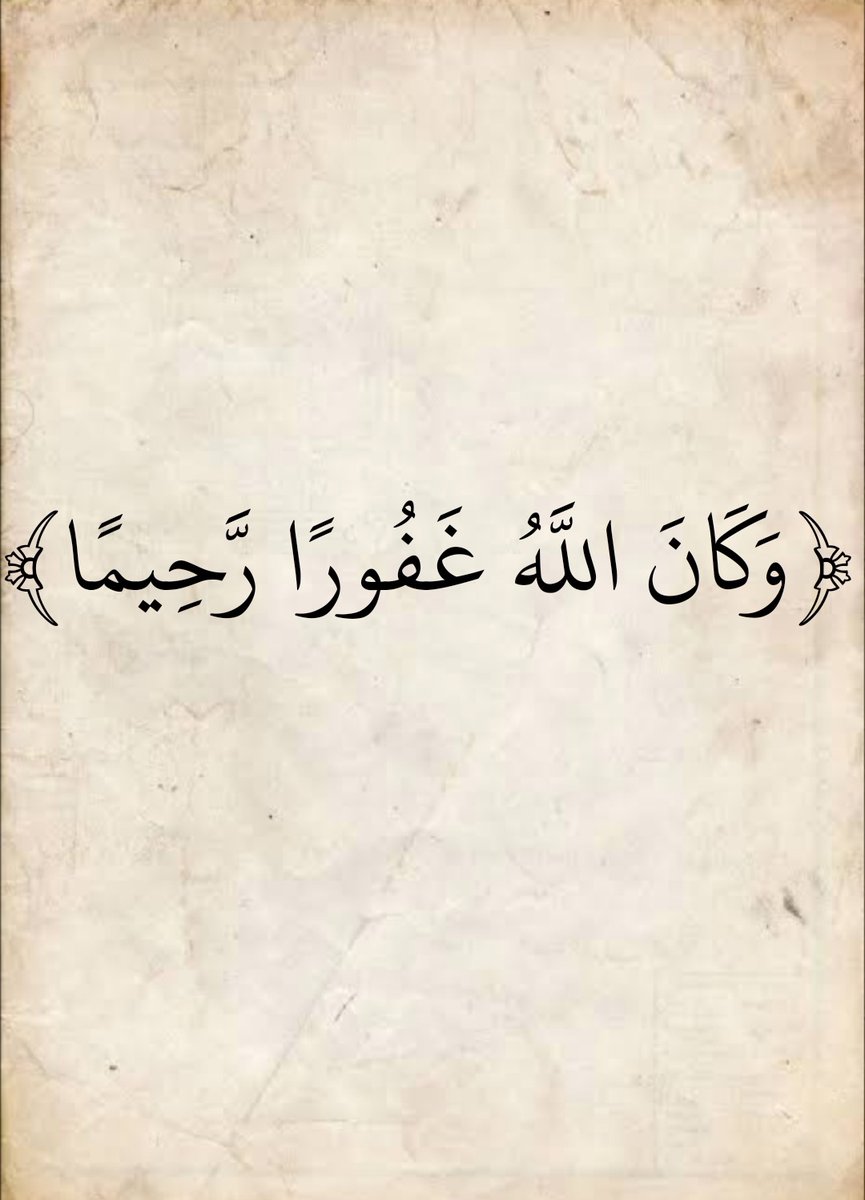 ﴿وَكَانَ اللَّهُ غَفُورًا رَّحِيمًا﴾